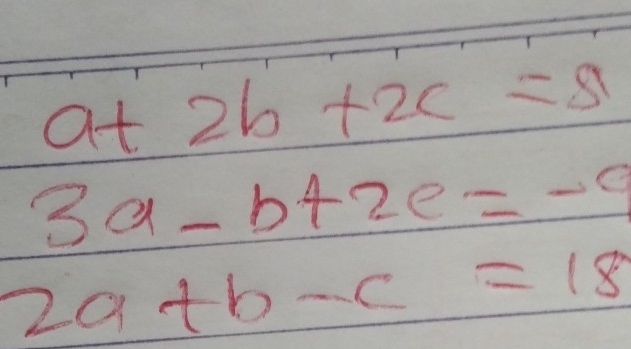 a+ 2b +2c = 8
3a - b + 2c = -9
2a + b - c = 18